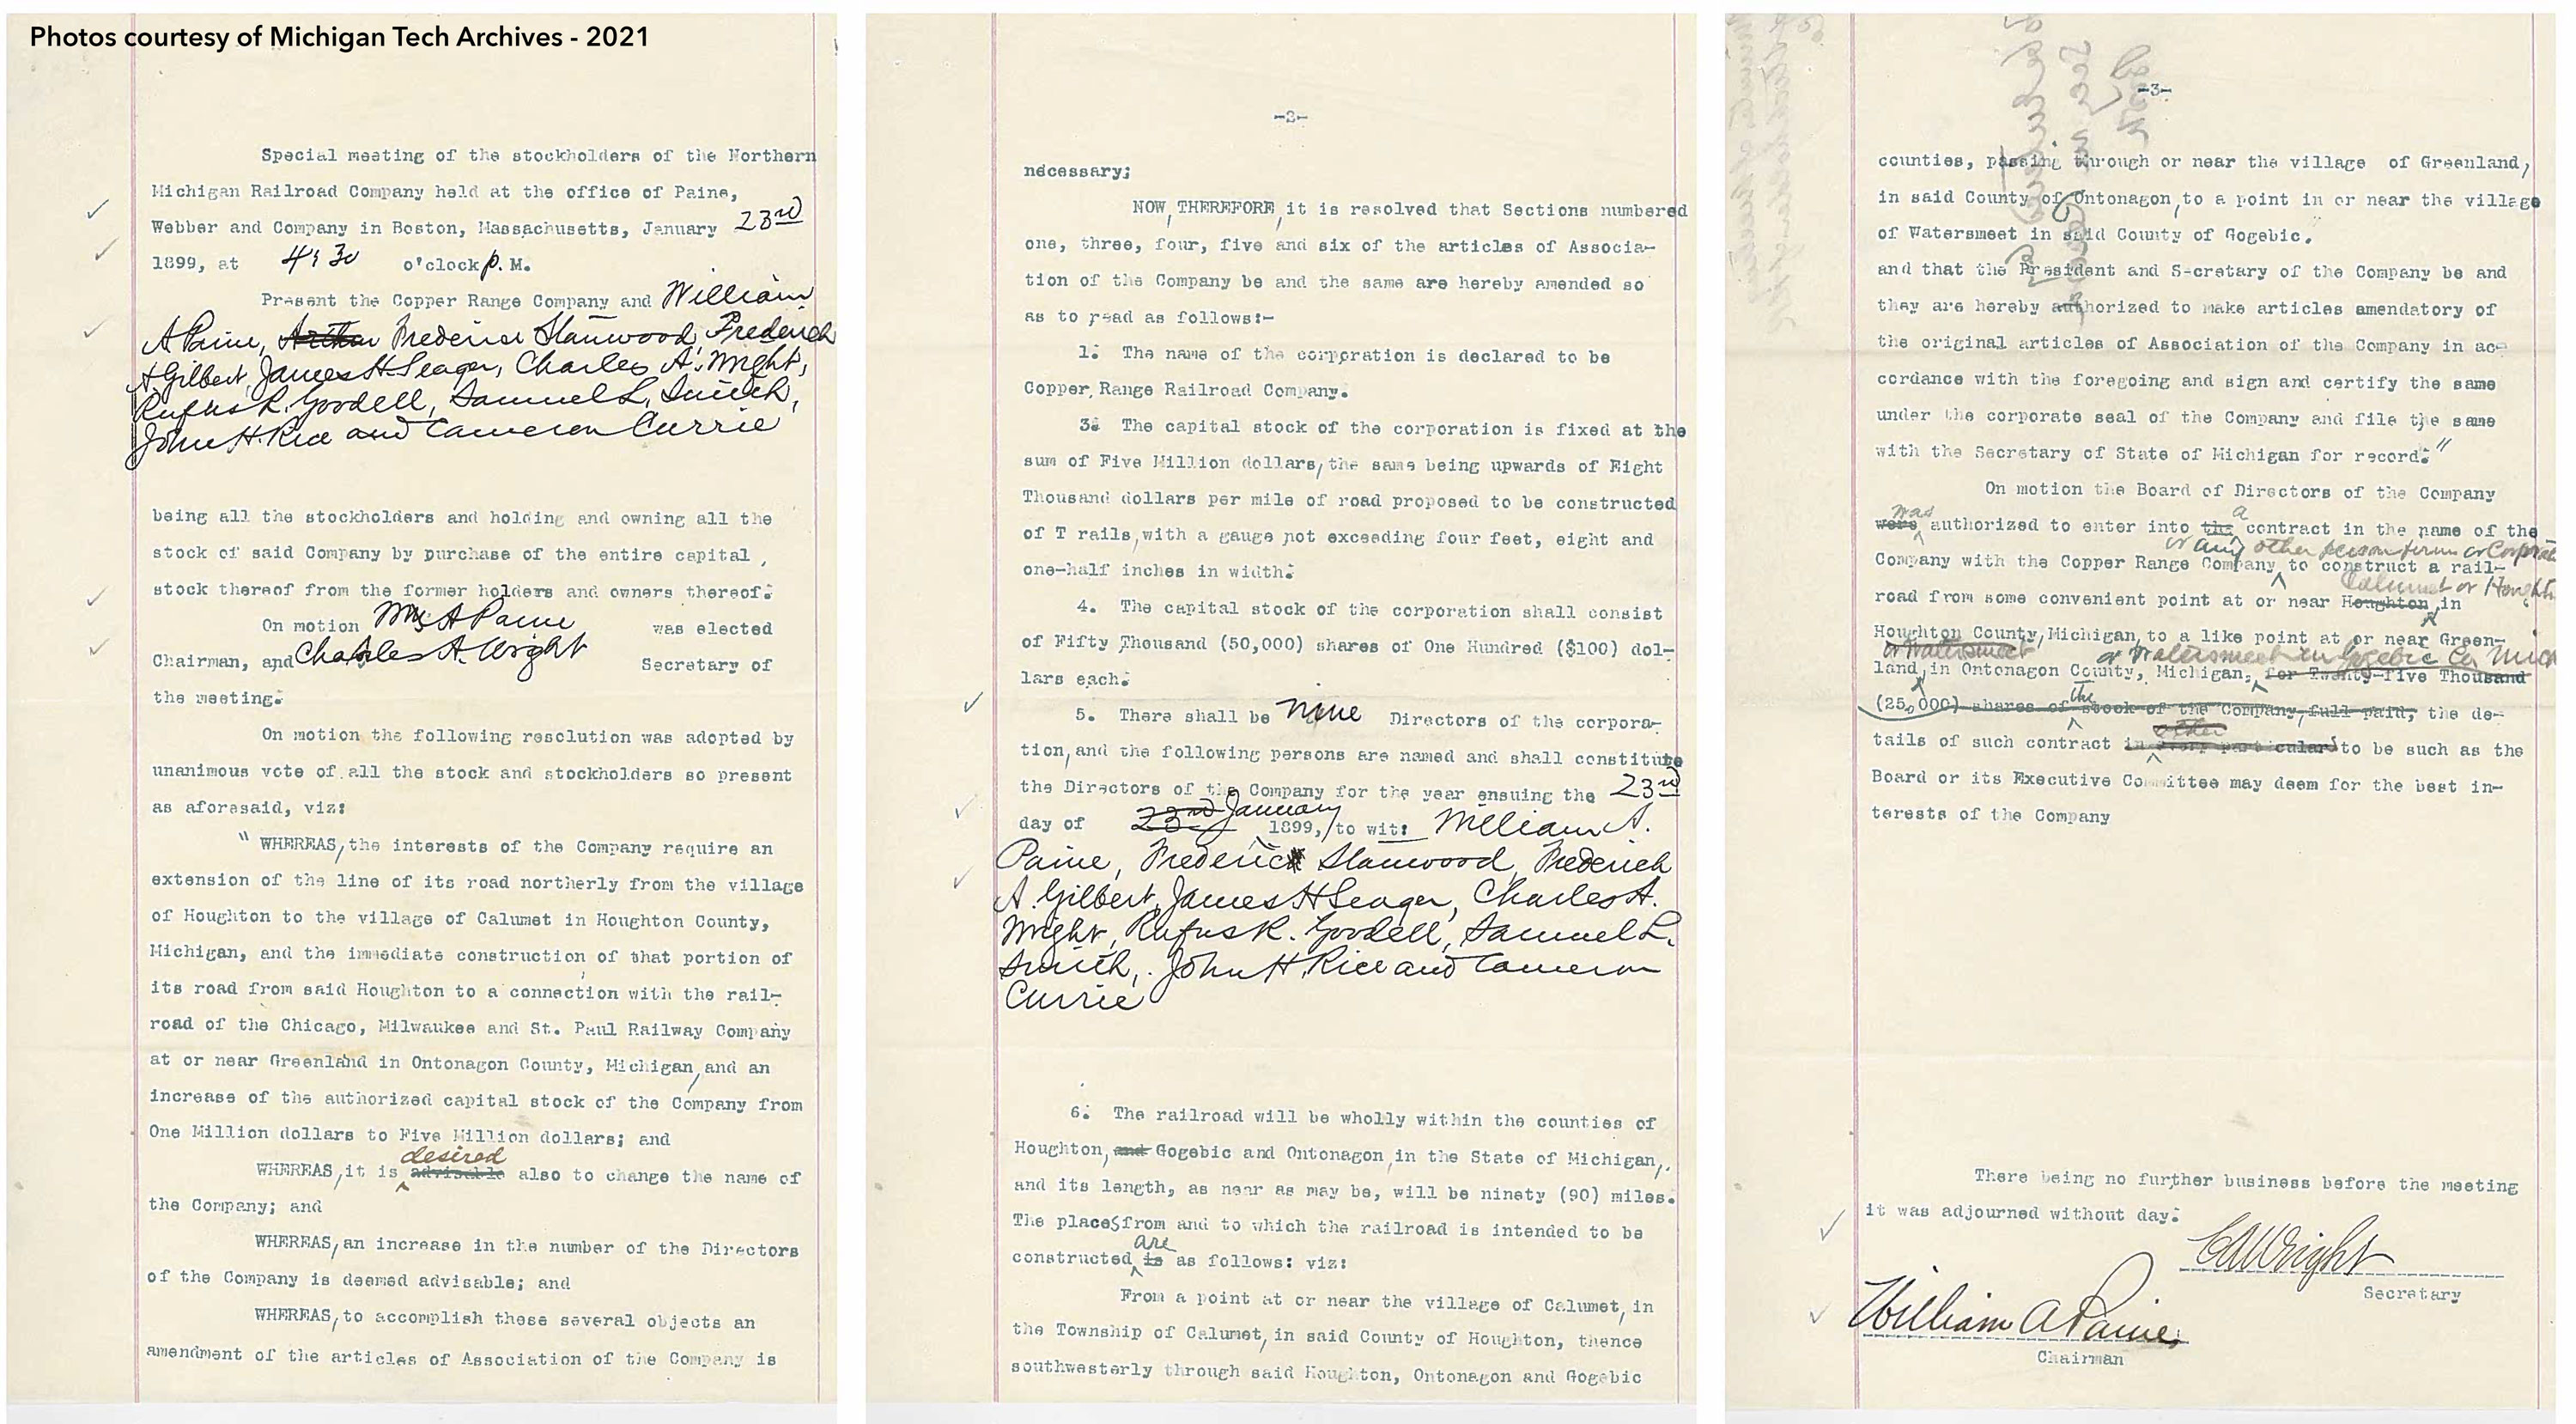 Photos courtesy of Michigan Tech Archives - 2021
Special meeting of the stockholders of the Northern
Michigan Railroad Company held at the office of Paine,
Webber and Company in Boston, Massachusetts, January 23rd
1899, at 4:30 o'clock p. M.
Present the Copper Range Company and William
A Paine, Arthur Frederic Stanwood, Frederick
A Gilbert, James H Seager, Charles A. Wright,
Rufus R. Goodell, Samuel L. Smith,
John H. Rice and Cameron Currie
being all the stockholders and holding and owning all the
stock of said Company by purchase of the entire capital,
stock thereof from the former holders and owners thereof.
On motion Wm A Paine was elected
Chairman, and Charles A. Wright Secretary of
the meeting.
On motion the following resolution was adopted by
unanimous vote of all the stock and stockholders so present
as aforesaid, viz:
" WHEREAS, the interests of the Company require an
extension of the line of its road northerly from the village
of Houghton to the village of Calumet in Houghton County,
Michigan, and the immediate construction of that portion of
its road from said Houghton to a connection with the rail-
road of the Chicago, Milwaukee and St. Paul Railway Company
at or near Greenland in Ontonagon County, Michigan, and an
increase of the authorized capital stock of the Company from
One Million dollars to Five Million dollars; and
desired
WHEREAS, it is advisable also to change the name of
the Company; and
WHEREAS, an increase in the number of the Directors
of the Company is deemed advisable; and
WHEREAS, to accomplish these several objects an
amendment of the articles of Association of the Company is
-2-
necessary;
NOW, THEREFORE, it is resolved that Sections numbered
one, three, four, five and six of the articles of Associa-
tion of the Company be and the same are hereby amended so
as to read as follows:-
1. The name of the corporation is declared to be
Copper Range Railroad Company.
3. The capital stock of the corporation is fixed at the
sum of Five Million dollars, the same being upwards of Eight
Thousand dollars per mile of road proposed to be constructed
of T rails, with a gauge not exceeding four feet, eight and
one-half inches in width.
4. The capital stock of the corporation shall consist
of Fifty Thousand (50,000) shares of One Hundred ($100) dol-
lars each.
5. There shall be nine Directors of the corpora-
tion, and the following persons are named and shall constitute
the Directors of the Company for the year ensuing the 23rd
day of 23rd January 1899, to wit: William A.
Paine, Frederic Stanwood, Frederick
A. Gilbert, James H Seager, Charles A.
Wright, Rufus R. Goodell, Samuel L.
Smith, John H. Rice and Cameron
Currie
6. The railroad will be wholly within the counties of
Houghton, and Gogebic and Ontonagon, in the State of Michigan,
and its length, as near as may be, will be ninety (90) miles.
The places from and to which the railroad is intended to be
are
constructed is as follows: viz:
From a point at or near the village of Calumet, in
the Township of Calumet, in said County of Houghton, thence
southwesterly through said Houghton, Ontonagon and Gogebic
-3-
counties, passing through or near the village of Greenland,
in said County of Ontonagon, to a point in or near the village
of Watersmeet in said County of Gogebic.
and that the President and S-cretary of the Company be and
they are hereby authorized to make articles amendatory of
the original articles of Association of the Company in ac-
cordance with the foregoing and sign and certify the same
under the corporate seal of the Company and file the same
with the Secretary of State of Michigan for record."
On motion the Board of Directors of the Company
was a
were authorized to enter into the contract in the name of the
or any other person firm or Corporat
Company with the Copper Range Company to construct a rail-
Calumet or Hough
road from some convenient point at or near Houghton, in
Houghton County, Michigan, to a like point at or near Green-
or Watersmeet or Watersmeet in Gogebic Co Mich
land, in Ontonagon County, Michigan, for Twenty-five Thousand
the
(25,000) shares of stock of the Company, full paid, the de-
other
tails of such contract in every particular to be such as the
Board or its Executive Committee may deem for the best in-
terests of the Company
There being no further business before the meeting
it was adjourned without day.
C A Wright
Secretary
William A Paine
Chairman